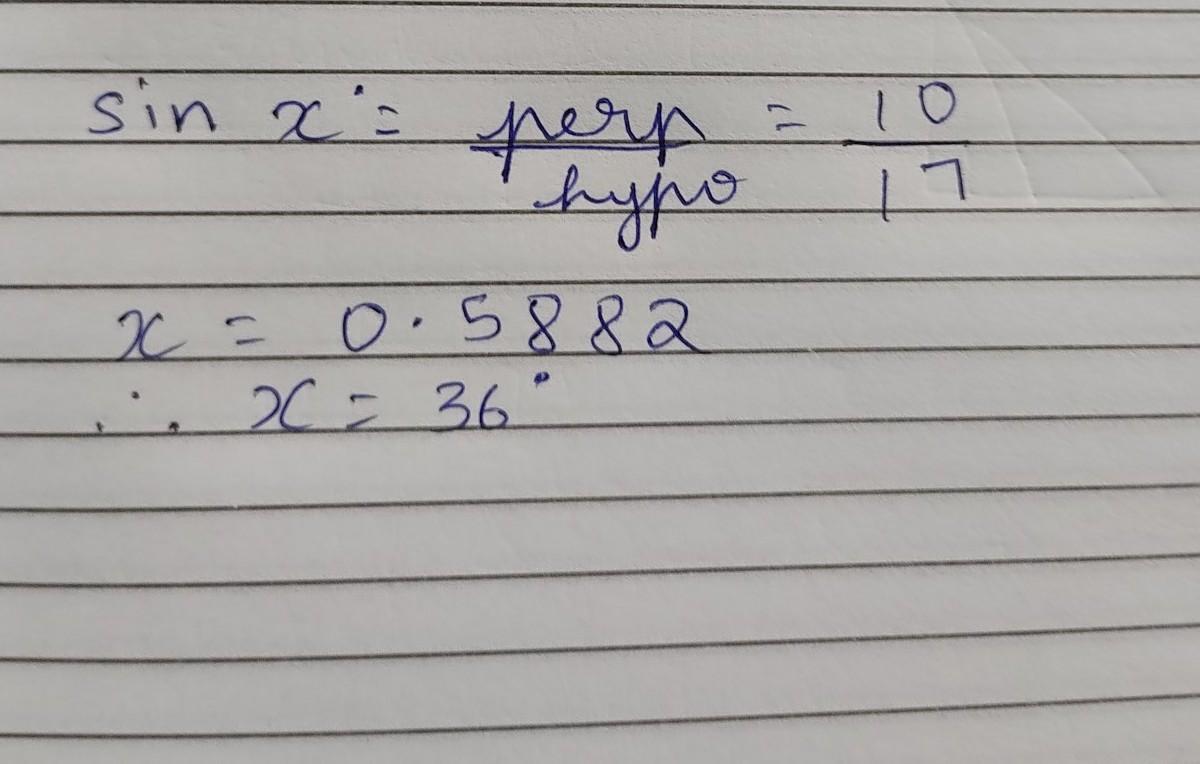 sin x° = perp/hypo = 10/17
x = 0.5882
∴ x = 36°